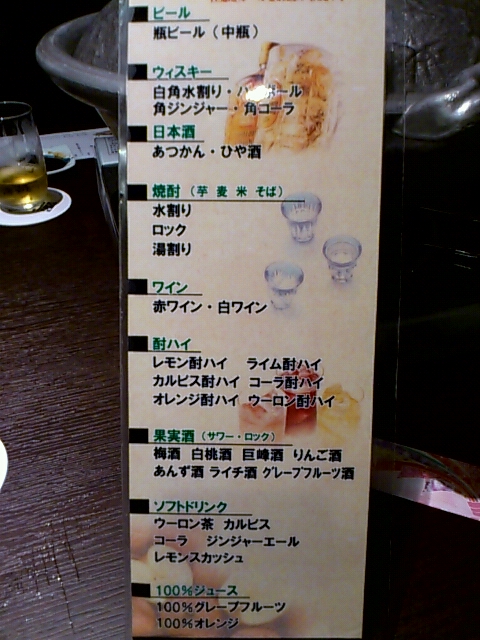 ビール
瓶ビール（中瓶）
ウィスキー
白角水割り・ハ ボール
角ジンジャー・角コーラ
日本酒
あつかん・ひや酒
焼酎（芋 麦 米 そば）
水割り
ロック
湯割り
ワイン
赤ワイン・白ワイン
酎ハイ
レモン酎ハイ ライム酎ハイ
カルピス酎ハイ コーラ酎ハイ
オレンジ酎ハイ ウーロン酎ハイ
果実酒（サワー・ロック）
梅酒 白桃酒 巨峰酒 りんご酒
あんず酒 ライチ酒 グレープフルーツ酒
ソフトドリンク
ウーロン茶 カルピス
コーラ ジンジャーエール
レモンスカッシュ
100%ジュース
100%グレープフルーツ
100%オレンジ